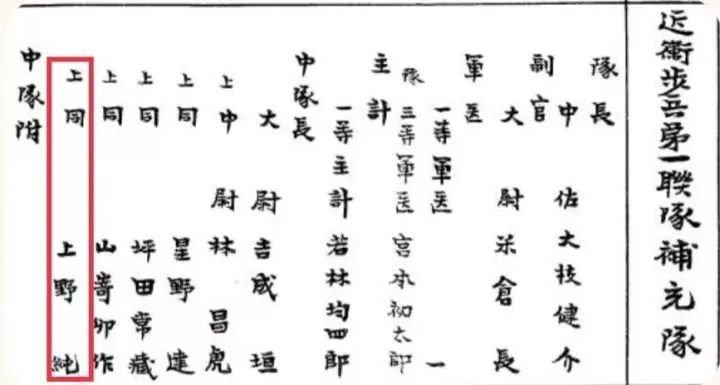 近衛步兵第一聯隊補充隊
隊長
中佐大枝健介
副官
大尉米倉長
軍医
一等軍医 一
豫三等軍医宮本初太郎
主計
一等主計若林均四郎
中隊長
大尉吉成垣
上中尉林昌虎
上同星野達
上同坪田常藏
上同山嵜卯作
上同上野純
中隊附